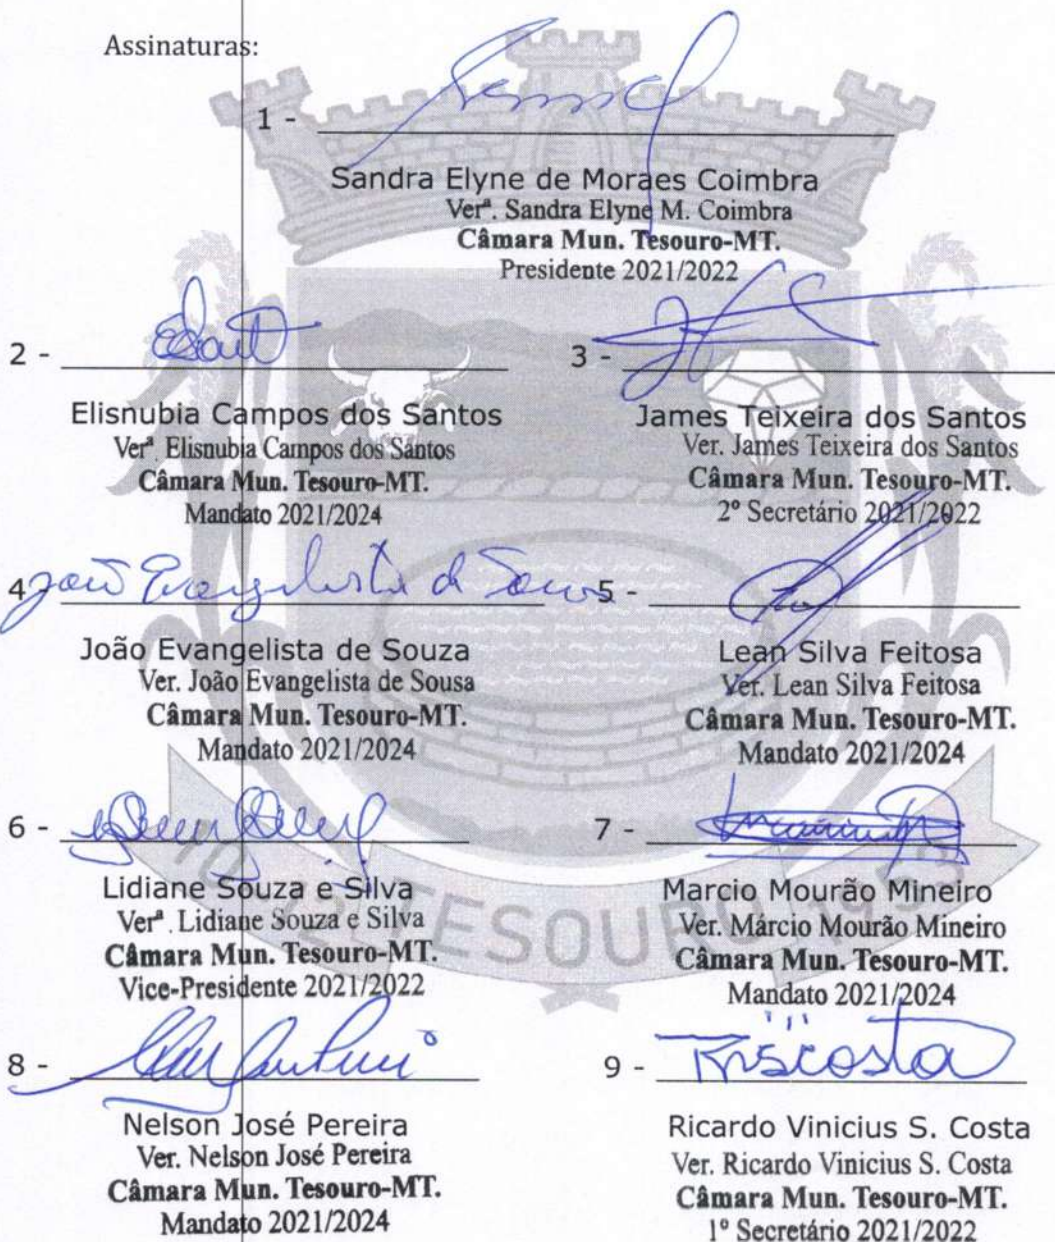 Assinaturas:
1 -
Sandra Elyne de Moraes Coimbra
Verª. Sandra Elyne M. Coimbra
Câmara Mun. Tesouro-MT.
Presidente 2021/2022
2 -
Elisnubia Campos dos Santos
Verª. Elisnubia Campos dos Santos
Câmara Mun. Tesouro-MT.
Mandato 2021/2024
3 -
James Teixeira dos Santos
Ver. James Teixeira dos Santos
Câmara Mun. Tesouro-MT.
2º Secretário 2021/2022
4 João Evangelista de Sousa
João Evangelista de Souza
Ver. João Evangelista de Sousa
Câmara Mun. Tesouro-MT.
Mandato 2021/2024
5 -
Lean Silva Feitosa
Ver. Lean Silva Feitosa
Câmara Mun. Tesouro-MT.
Mandato 2021/2024
6 -
Lidiane Souza e Silva
Verª. Lidiane Souza e Silva
Câmara Mun. Tesouro-MT.
Vice-Presidente 2021/2022
7 -
Marcio Mourão Mineiro
Ver. Márcio Mourão Mineiro
Câmara Mun. Tesouro-MT.
Mandato 2021/2024
8 -
Nelson José Pereira
Ver. Nelson José Pereira
Câmara Mun. Tesouro-MT.
Mandato 2021/2024
9 -
Ricardo Vinicius S. Costa
Ver. Ricardo Vinicius S. Costa
Câmara Mun. Tesouro-MT.
1º Secretário 2021/2022
TESOURO